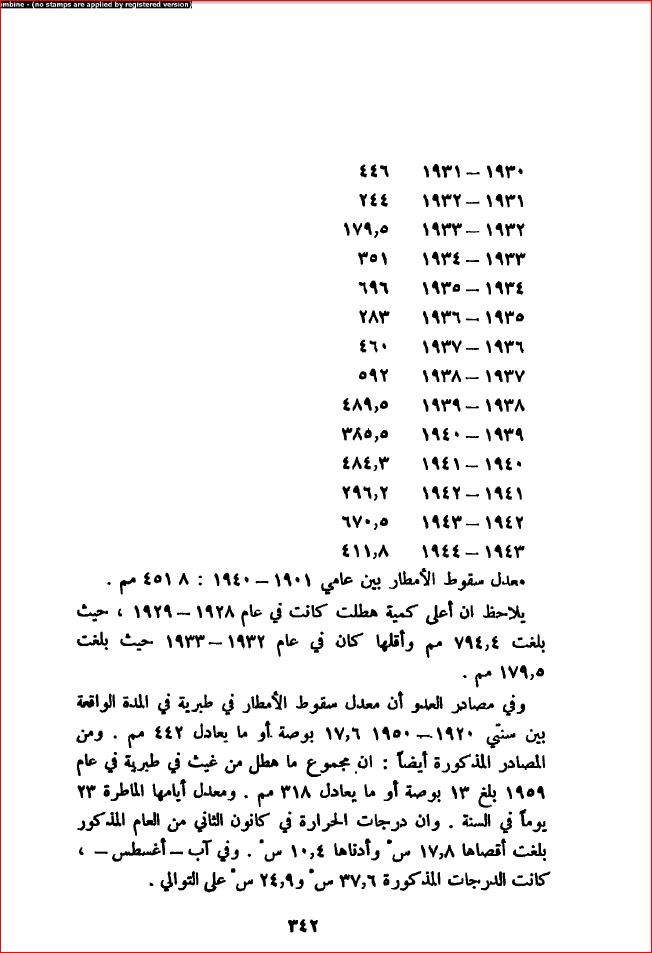 ombine - (no stamps are applied by registered version)
١٩٣٠ – ١٩٣١ ٤٤٦
١٩٣١ – ١٩٣٢ ٢٤٤
١٩٣٢ – ١٩٣٣ ١٧٩,٥
١٩٣٣ – ١٩٣٤ ٣٥١
١٩٣٤ – ١٩٣٥ ٦٩٦
١٩٣٥ – ١٩٣٦ ٢٨٣
١٩٣٦ – ١٩٣٧ ٤٦٠
١٩٣٧ – ١٩٣٨ ٥٩٢
١٩٣٨ – ١٩٣٩ ٤٨٩,٥
١٩٣٩ – ١٩٤٠ ٣٨٥,٥
١٩٤٠ – ١٩٤١ ٤٨٤,٣
١٩٤١ – ١٩٤٢ ٢٩٦,٢
١٩٤٢ – ١٩٤٣ ٦٧٠,٥
١٩٤٣ – ١٩٤٤ ٤١١,٨
معدل سقوط الأمطار بين عامي ١٩٠١ – ١٩٤٠ : ٤٥١ ٨ مم .
يلاحظ ان أعلى كمية هطلت كانت في عام ١٩٢٨ – ١٩٢٩ ، حيث
بلغت ٧٩٤,٤ مم وأقلها كان في عام ١٩٣٢ – ١٩٣٣ حيث بلغت
١٧٩,٥ مم .
وفي مصادر العدو أن معدل سقوط الأمطار في طبرية في المدة الواقعة
بين سنتي ١٩٢٠ – ١٩٥٠ ١٧,٦ بوصة أو ما يعادل ٤٤٢ مم . ومن
المصادر المذكورة أيضاً : ان مجموع ما هطل من غيث في طبرية في عام
١٩٥٩ بلغ ١٣ بوصة أو ما يعادل ٣١٨ مم . ومعدل أيامها الماطرة ٢٣
يوماً في السنة . وان درجات الحرارة في كانون الثاني من العام المذكور
بلغت أقصاها ١٧,٨ س° وأدناها ١٠,٤ س° . وفي آب – أغسطس – ،
كانت الدرجات المذكورة ٣٧,٦ س° و٢٤,٩ س° على التوالي .
٣٤٢